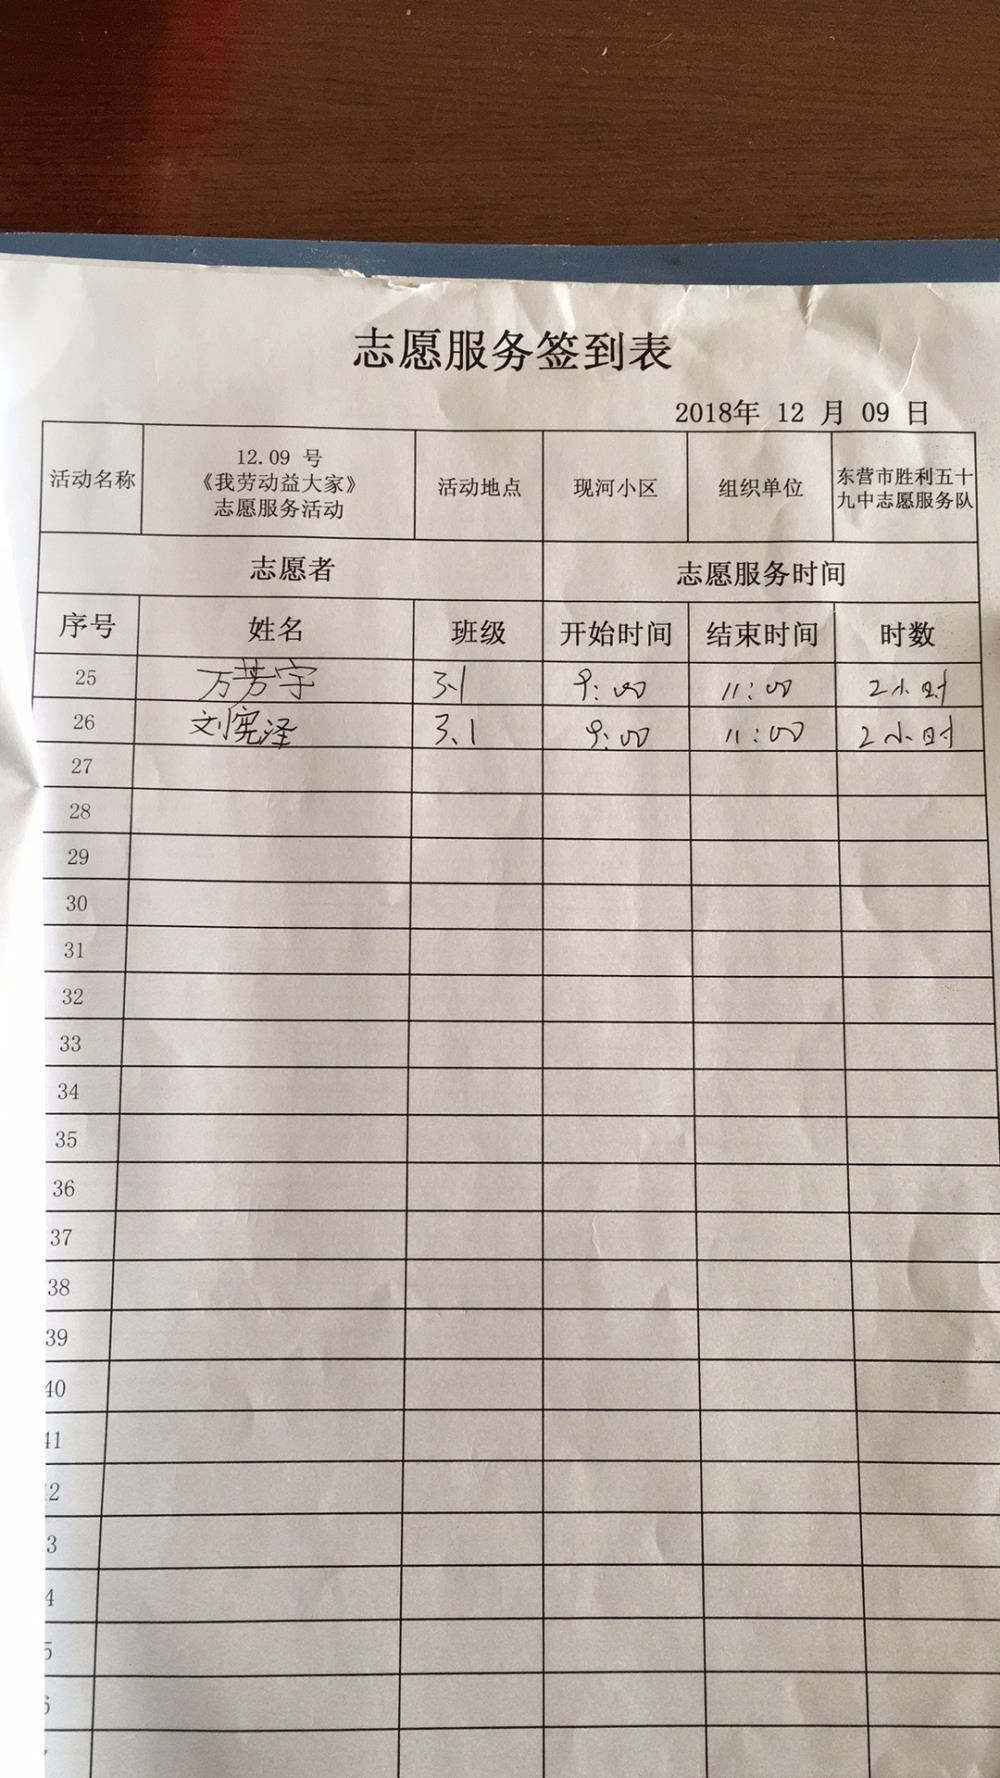 志愿服务签到表
2018年 12 月 09 日
活动名称 12.09 号 《我劳动益大家》 志愿服务活动 活动地点 现河小区 组织单位 东营市胜利五十九中志愿服务队
志愿者 志愿服务时间
序号 姓名 班级 开始时间 结束时间 时数
25 万芳宇 3.1 9:00 11:00 2小时
26 刘宪泽 3.1 9:00 11:00 2小时
27
28
29
30
31
32
33
34
35
36
37
38
39
40
41